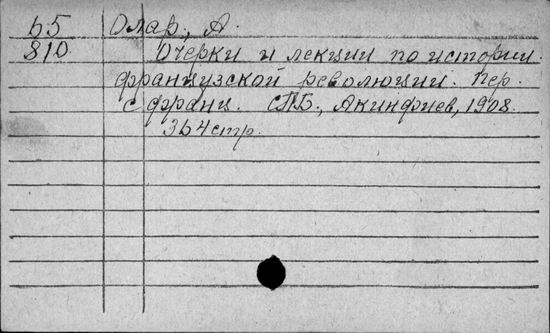 Б5 Олар, А.
810 Очерки и лекции по истории
французской революции. Пер.
с франц. СПБ., Акинфиев, 1908.
364 стр.